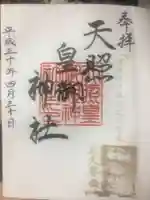 奉拝
天照
皇御
神社
平成三十年四月三十日